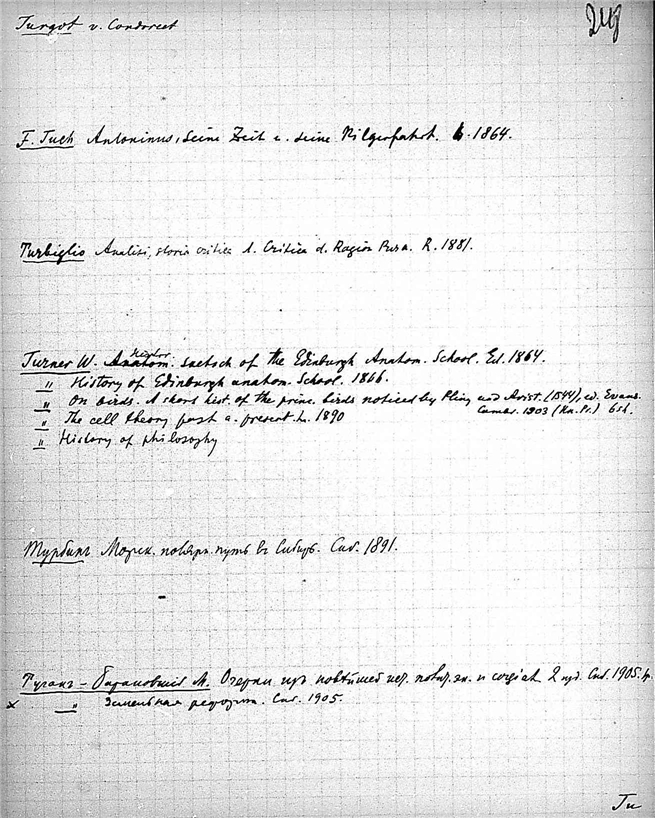 Turgot v. Condorcet
F. Tuch Antoninus, seine Zeit u. seine Pilgerfahrt. 1864.
Turbiglio Analisi, storia critica d. Critica d. Ragion Pura. R. 1881.
Histor.
Turner W. Anatom. sketch of the Edinburgh Anatom. School. Ed. 1864.
" History of Edinburgh anatom. School. 1866.
" On birds. A short hist. of the princ. birds noticed by Pliny and Arist. (1544), ed. Evans.
Cambr. 1903 (Un. Pr.) 6sh.
" The cell theory past a. present. L. 1890
" History of philosophy
Турбинъ Морск. поляр. путь въ Сибирь. Спб. 1891.
Туганъ-Барановскій М. Очерки изъ новѣйшей ист. 2 изд. Спб. 1905.
x " Земельная реформа. Спб. 1905.
Tu